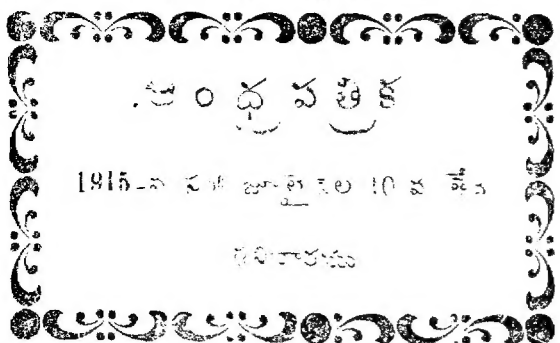 ఆంధ్రపత్రిక
1915-వ సం॥ జూలై నెల 10 వ తేది